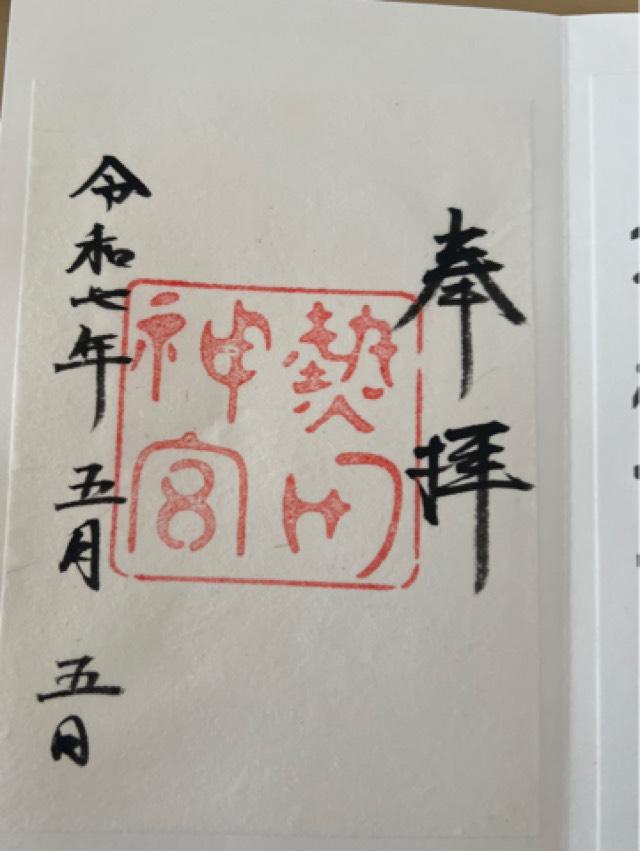 奉拝
熱田
神宮
令和七年 五月 五日